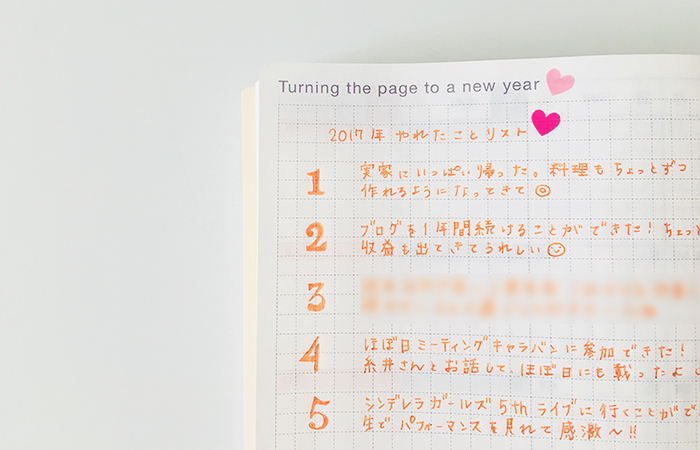 Turning the page to a new year
2017年 やれたことリスト
1 実家にいっぱい帰った。料理もちょっとずつ
作れるようになってきて
2 ブログを1年間続けることができた!ちょっと
収益も出てきてうれしい
3
4 ほぼ日ミーティングキャラバンに参加できた!
糸井さんとお話して、ほぼ日にも載ったよ
5 シンデレラガールズ5thライブに行くことがで
生でパフォーマンスを見れて感激〜!!